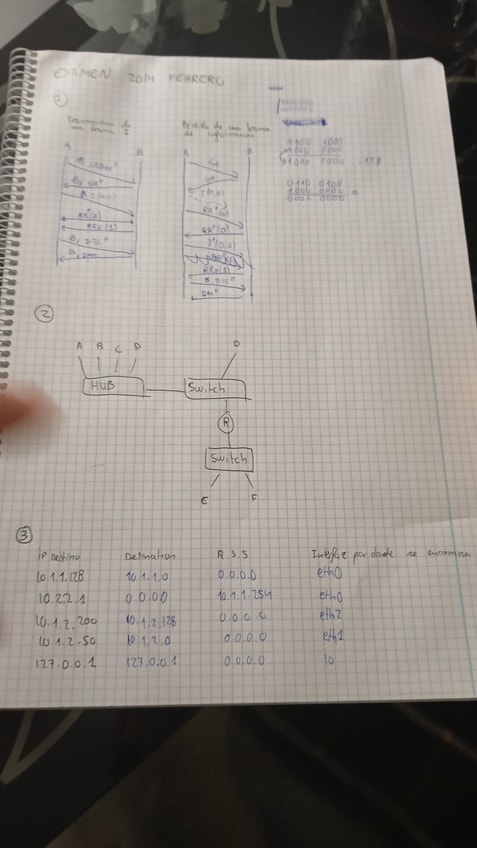 EXAMEN 2014 FEBRERO
1
Transmisión de
una trama I
A B
RR(0)
B, DISC P
Perdida de una trama
de información
RR(0)
I(0,0)
RR(1)
B, DISC P
1100 1000
1000 0000
1000 0000 .128
0110 0100
1000 0000 =
0000 0000
2
A B C D
D
HUB
Switch
R
Switch
E F
3
IP Destino Destination R.S.S Interfaz por donde se encamina
10.1.1.128 10.1.1.0 0.0.0.0 eth0
10.2.2.1 0.0.0.0 10.1.1.254 eth0
10.1.2.200 10.1.2.128 0.0.0.0 eth2
10.1.2.50 10.1.2.0 0.0.0.0 eth1
127.0.0.1 127.0.0.1 0.0.0.0 lo